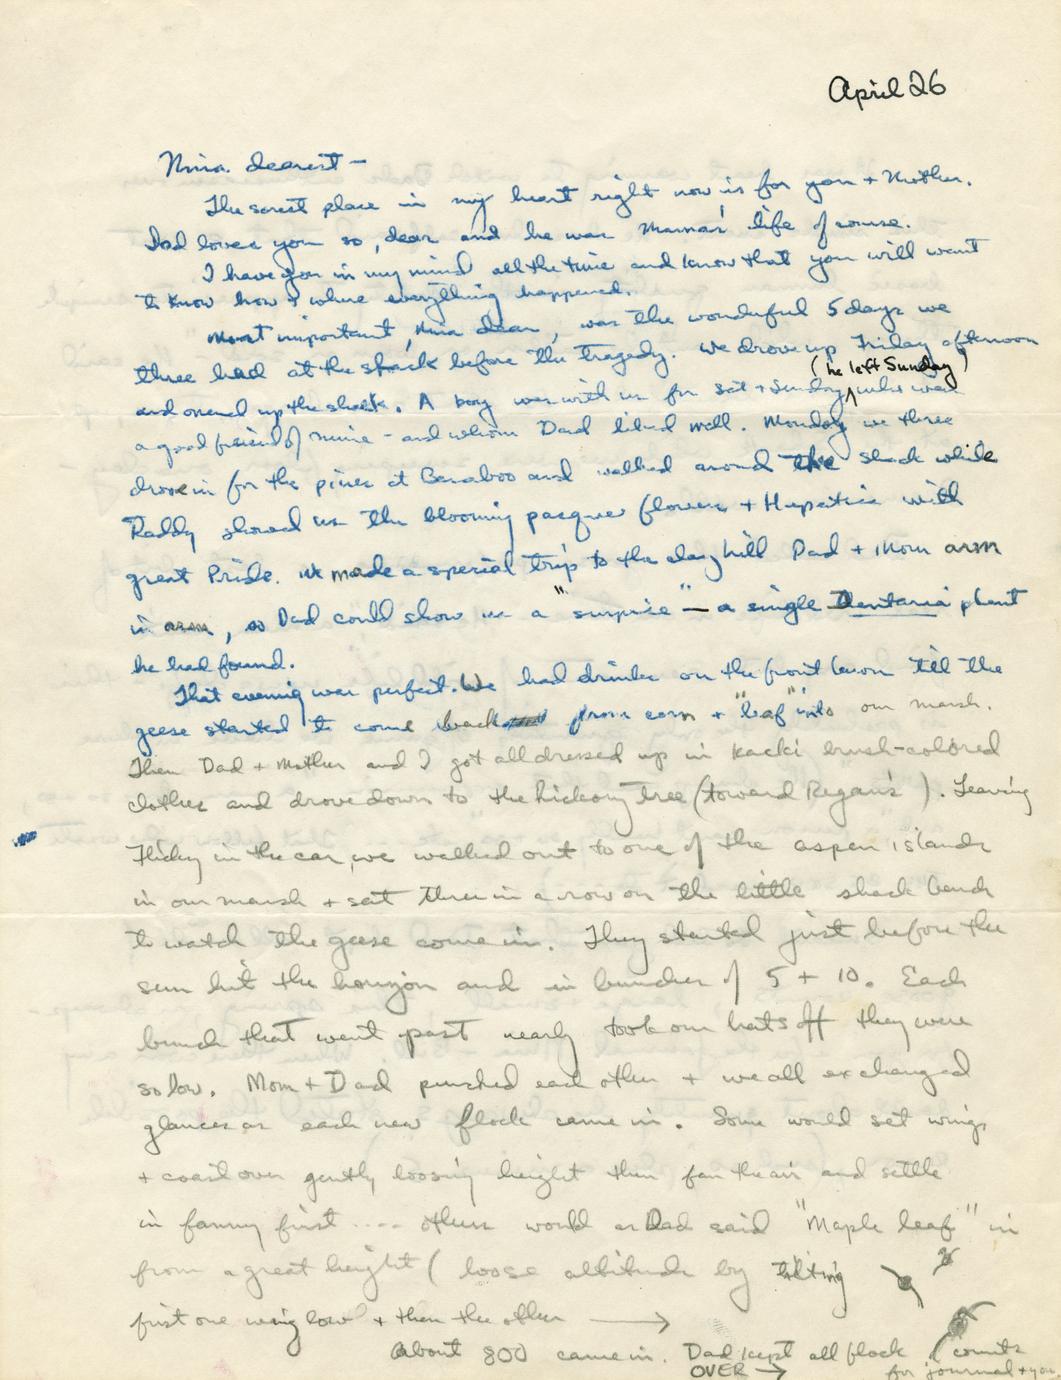 April 26
Nina dearest -
The sorest place in my heart right now is for you + Mother.
Dad loved you so, dear and he was Mama's life of course.
I have you in my mind all the time and know that you will want
to know how + where everything happened.
Most important, Nina dear, was the wonderful 5 days we
three had at the shack before the tragedy. We drove up Friday afternoon
(he left Sunday)
and opened up the shack. A boy was with us for Sat + Sunday who was
a good friend of mine - and whom Dad liked well. Monday we three
drove in for the pines at Baraboo and walked around the shack while
Daddy showed us the blooming pasque flowers + Hepatica with
great Pride. We made a special trip to the clay hill Dad + Mom arm
in arm, so Dad could show us a "surprise" - a single Dentaria plant
he had found.
That evening was perfect. We had drinks on the front lawn till the
geese started to come back from corn + "leaf" into our marsh.
Then Dad + Mother and I got all dressed up in Kacki brush-colored
clothes and drove down to the hickory tree (toward Regan's). Leaving
Flicky in the car, we walked out to one of the aspen islands
in our marsh + sat three in a row on the little shack bench
to watch the geese come in. They started just before the
sun hit the horizon and in bunches of 5 + 10. Each
bunch that went past nearly took our hats off they were
so low. Mom + Dad punched each other + we all exchanged
glances as each new flock came in. Some would set wings
+ coast over gently loosing height then fan the air and settle
in fanny first .... others would as Dad said "Maple leaf" in
from a great height (loose altitude by tilting
first one wing low + then the other →
About 800 came in. Dad kept all flock counts
OVER → for journal + you